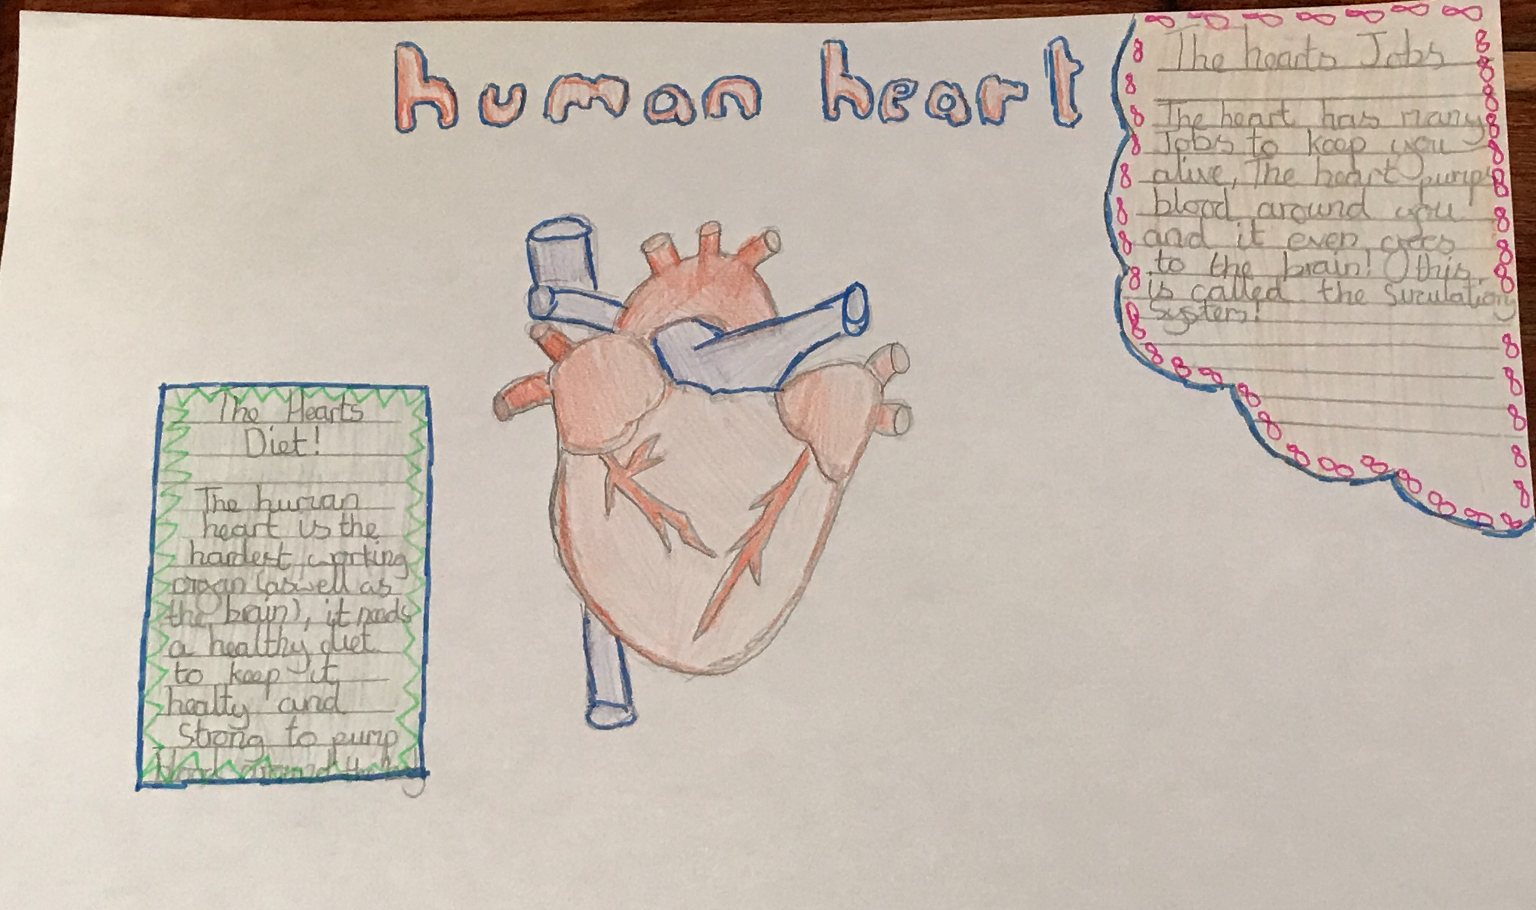 human heart
The hearts Jobs
The heart has many
Jobs to keep you
alive, The heart pumps
blood around you
and it even goes
to the brain! (this
is called the Surculation
System!
The Hearts
Diet!
The human
heart is the
hardest working
organ (aswell as
the brain), it needs
a healthy diet
to keep it
healty and
strong to pump
blood around